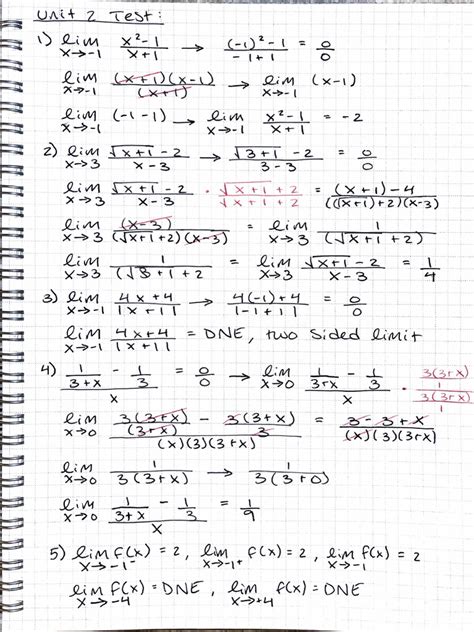 Unit 2 Test:
1) lim x→-1 (x²-1)/(x+1) → ((-1)²-1)/(-1+1) = 0/0
lim x→-1 ((x+1)(x-1))/(x+1) → lim x→-1 (x-1)
lim x→-1 (-1-1) → lim x→-1 (x²-1)/(x+1) = -2
2) lim x→3 (√(x+1)-2)/(x-3) → (√(3+1)-2)/(3-3) = 0/0
lim x→3 (√(x+1)-2)/(x-3) · (√(x+1)+2)/(√(x+1)+2) = ((x+1)-4)/((√(x+1)+2)(x-3))
lim x→3 (x-3)/((√(x+1)+2)(x-3)) = lim x→3 1/(√(x+1)+2)
lim x→3 1/(√3+1+2 = lim x→3 (√(x+1)-2)/(x-3) = 1/4
3) lim x→-1 (4x+4)/|x+1| → (4(-1)+4)/|-1+1| = 0/0
lim x→-1 (4x+4)/|x+1| = DNE, two sided limit
4) (1/(3+x) - 1/3)/x = 0/0 → lim x→0 (1/(3+x) - 1/3)/x · (3(3+x)/1)/(3(3+x)/1)
lim x→0 (3(3+x)/(3+x) - 3(3+x)/3)/((x)(3)(3+x)) = (3-3+x)/((x)(3)(3+x))
lim x→0 1/(3(3+x)) → 1/(3(3+0))
lim x→0 (1/(3+x) - 1/3)/x = 1/9
5) lim x→-1⁻ f(x) = 2, lim x→-1⁺ f(x) = 2, lim x→-1 f(x) = 2
lim x→-4 f(x) = DNE, lim x→+4 f(x) = DNE